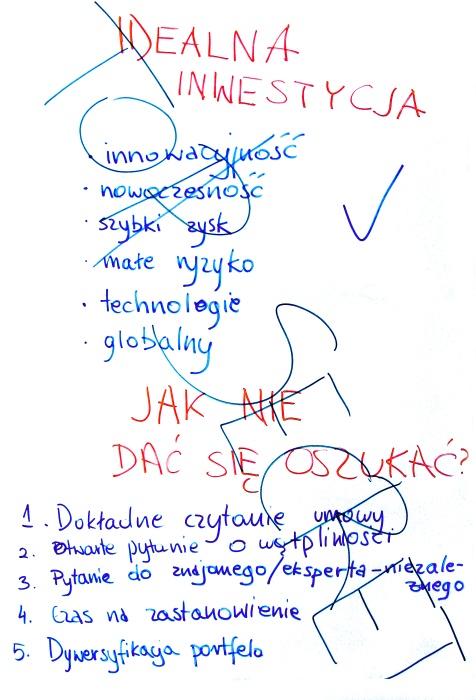 IDEALNA
INWESTYCJA
· innowacyjność
· nowoczesność
· szybki zysk
· małe ryzyko
· technologie
· globalny
JAK NIE
DAĆ SIĘ OSZUKAĆ?
1. Dokładne czytanie umowy
2. Otwarte pytanie o wątpliwości
3. Pytanie do znajomego/eksperta-niezale-
żnego
4. Czas na zastanowienie
5. Dywersyfikacja portfela